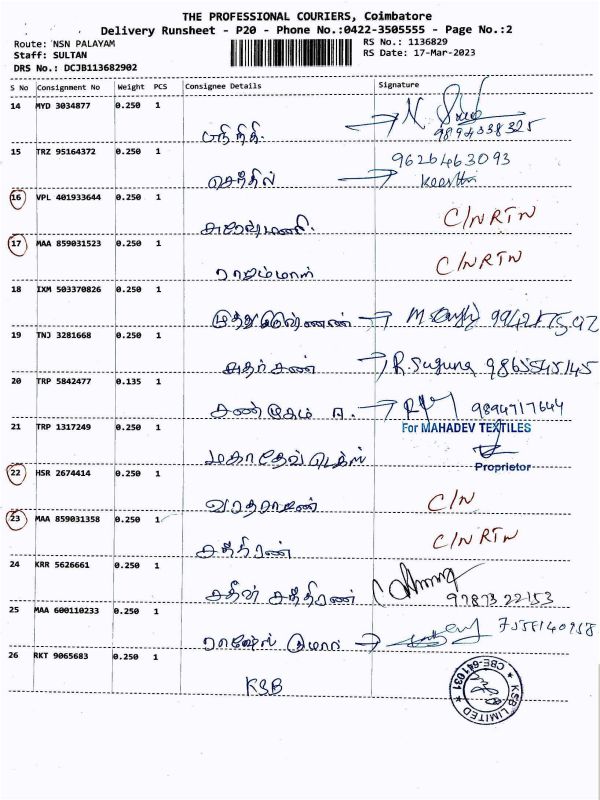 THE PROFESSIONAL COURIERS, Coimbatore
Delivery Runsheet - P20 - Phone No.:0422-3505555 - Page No.:2
Route: NSN PALAYAM
Staff: SULTAN
DRS No.: DCJB113682902
RS No.: 1136829
RS Date: 17-Mar-2023
S No Consignment No Weight PCS Consignee Details Signature
14 MYD 3034877 0.250 1
9894338325
15 TRZ 95164372 0.250 1 செந்தில் 9626463093
16 VPL 401933644 0.250 1 C/NRTN
17 MAA 859031523 0.250 1 ராஜம்மாள் C/NRTN
18 IXM 503370826 0.250 1
19 TNJ 3281668 0.250 1 R. Suguna 9865545145
20 TRP 5842477 0.135 1 சண்முகம் A. 9894717644
21 TRP 1317249 0.250 1 மகாதேவ் டெக்ஸ்
For MAHADEV TEXTILES
Proprietor
22 HSR 2674414 0.250 1 வரதராஜன் C/N
23 MAA 859031358 0.250 1 C/NRTN
24 KRR 5626661 0.250 1
9787322153
25 MAA 600110233 0.250 1
26 RKT 9065683 0.250 1 KSB
KSB LIMITED CBE-641031